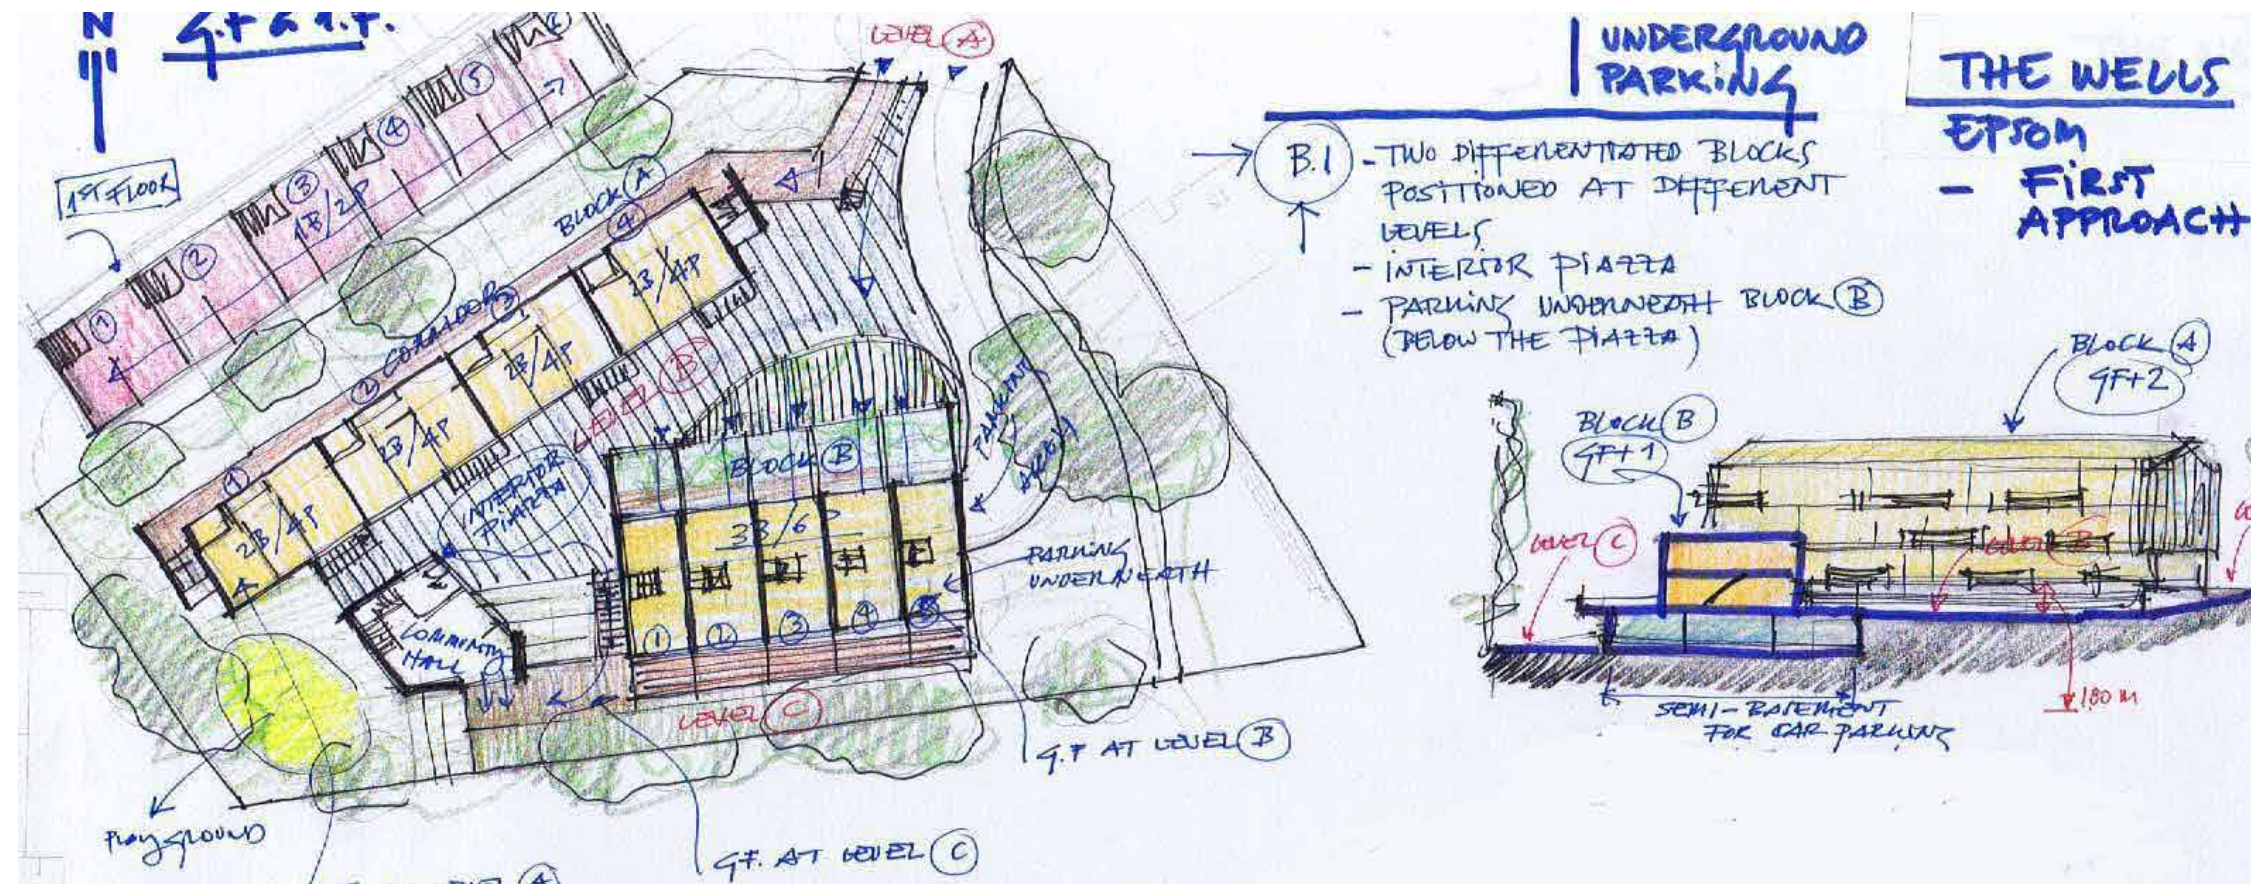 N
G.F & 1.F.
LEVEL A
1ST FLOOR
1
2
3
4
5
6
1B/2P
BLOCK A
CORRIDOR
1
2
3
4
2B/4P
2B/4P
2B/4P
2B/4P
LEVEL B
INTERIOR
PIAZZA
BLOCK B
3B/6P
1
2
3
4
5
PARKING
ACCESS
PARKING
UNDERNEATH
COMMUNITY
HALL
LEVEL C
PLAYGROUND
G.F AT LEVEL B
G.F. AT LEVEL C
UNDERGROUND
PARKING
THE WELLS
EPSOM
- FIRST
APPROACH
B.1
- TWO DIFFERENTIATED BLOCKS
POSITIONED AT DIFFERENT
LEVELS
- INTERIOR PIAZZA
- PARKING UNDERNEATH BLOCK B
(BELOW THE PIAZZA)
BLOCK A
GF+2
BLOCK B
GF+1
LEVEL C
LEVEL B
1,80 m
SEMI-BASEMENT
FOR CAR PARKING